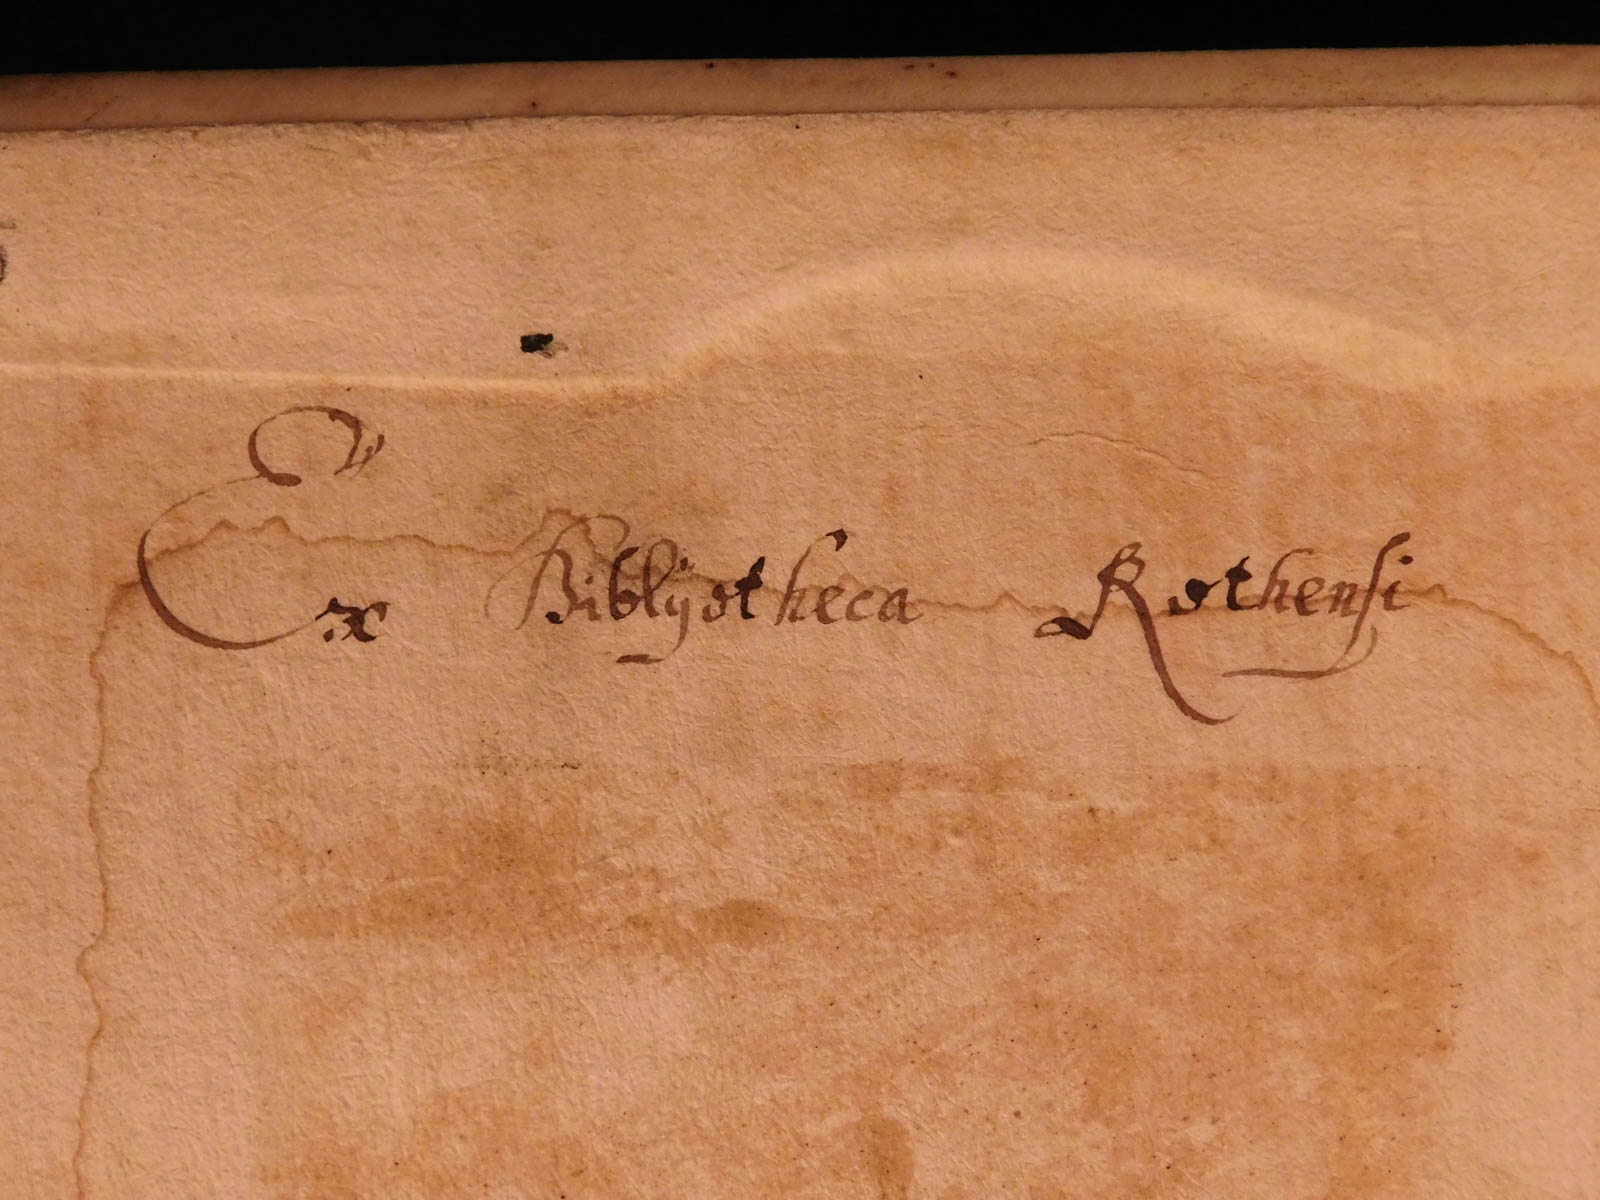 Ex Biblÿotheca Rothensi